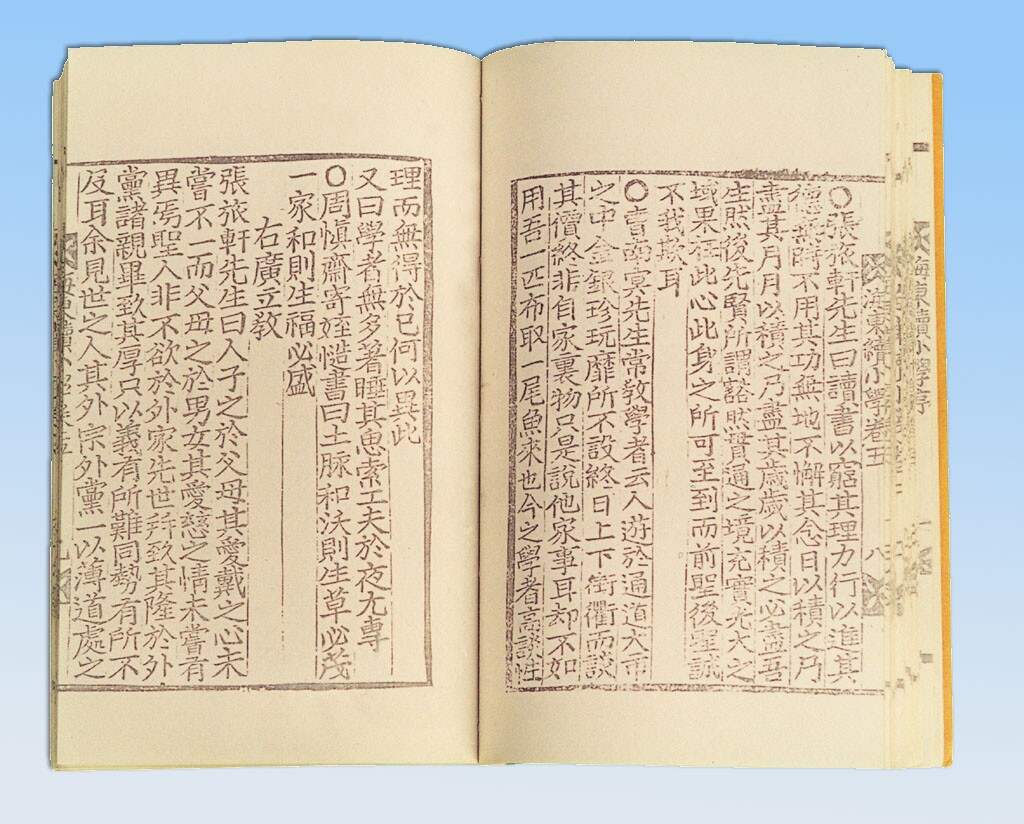 海東續小學卷五 八
○張旅軒先生曰讀書以窮其理力行以進其
德無時不用其功無地不懈其念日以積之乃
盡其月月以積之乃盡其歲歲以積之必盡吾
生然後先賢所謂豁然貫通之境充實光大之
域果在此心此身之所可至到而前聖後聖誠
不我欺耳
○曺南冥先生常敎學者云人遊於通道大市
之中金銀珍玩靡所不設終日上下街衢而談
其價終非自家裏物只是說他家事耳却不如
用吾一匹布取一尾魚來也今之學者高談性
理而無得於己何以異此
又曰學者無多著睡其思索工夫於夜尤專
○周愼齋寄姪書曰土脉和沃則生草必茂
一家和則生福必盛
右廣立敎
張旅軒先生曰人子之於父母其愛戴之心未
嘗不一而父母之於男女其愛慈之情未嘗有
異焉聖人非不欲於外家先世幷致其隆於外
黨諸親畢致其厚只以義有所難同勢有所不
及耳余見世之人其外宗外黨一以薄道處之